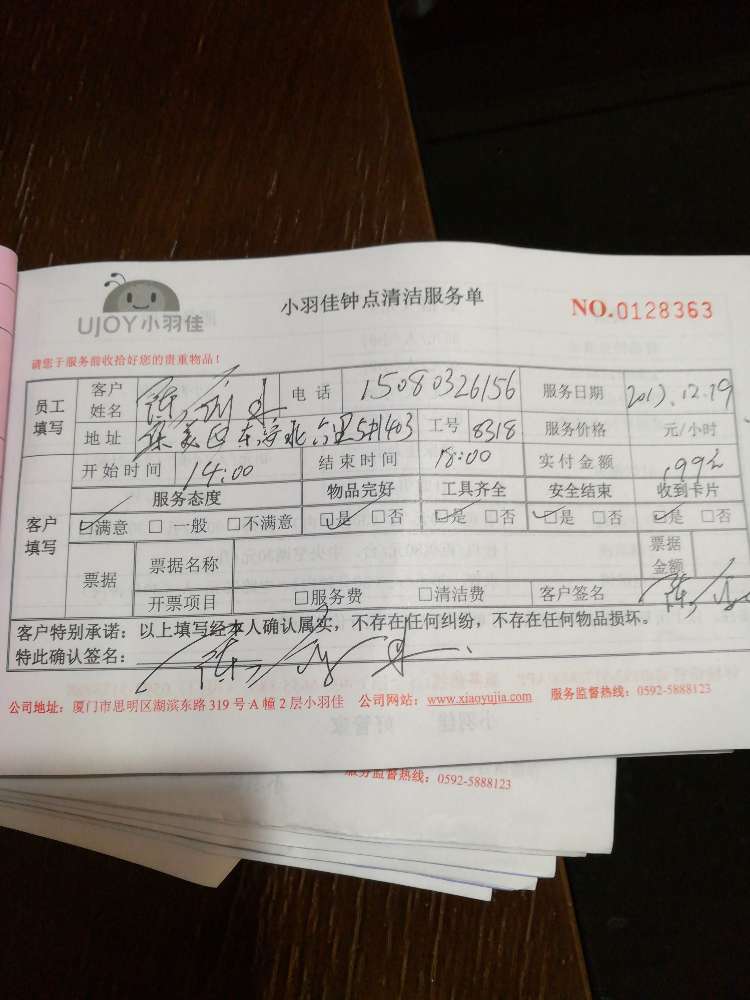 UJOY小羽佳
小羽佳钟点清洁服务单
NO.0128363
请您于服务前收拾好您的贵重物品！
员工填写 客户姓名 电话 15080326156 服务日期 2017.12.29
地址 集美区 工号 8318 服务价格 元/小时
客户填写 开始时间 14:00 结束时间 18:00 实付金额
服务态度 物品完好 工具齐全 安全结束 收到卡片
☑满意 □一般 □不满意 ☑是 □否 ☑是 □否 ☑是 □否 ☑是 □否
票据 票据名称 票据金额
开票项目 □服务费 □清洁费 客户签名
客户特别承诺：以上填写经本人确认属实，不存在任何纠纷，不存在任何物品损坏。
特此确认签名：
公司地址：厦门市思明区湖滨东路319号A幢2层小羽佳 公司网站：www.xiaoyujia.com 服务监督热线：0592-5888123
服务监督热线：0592-5888123